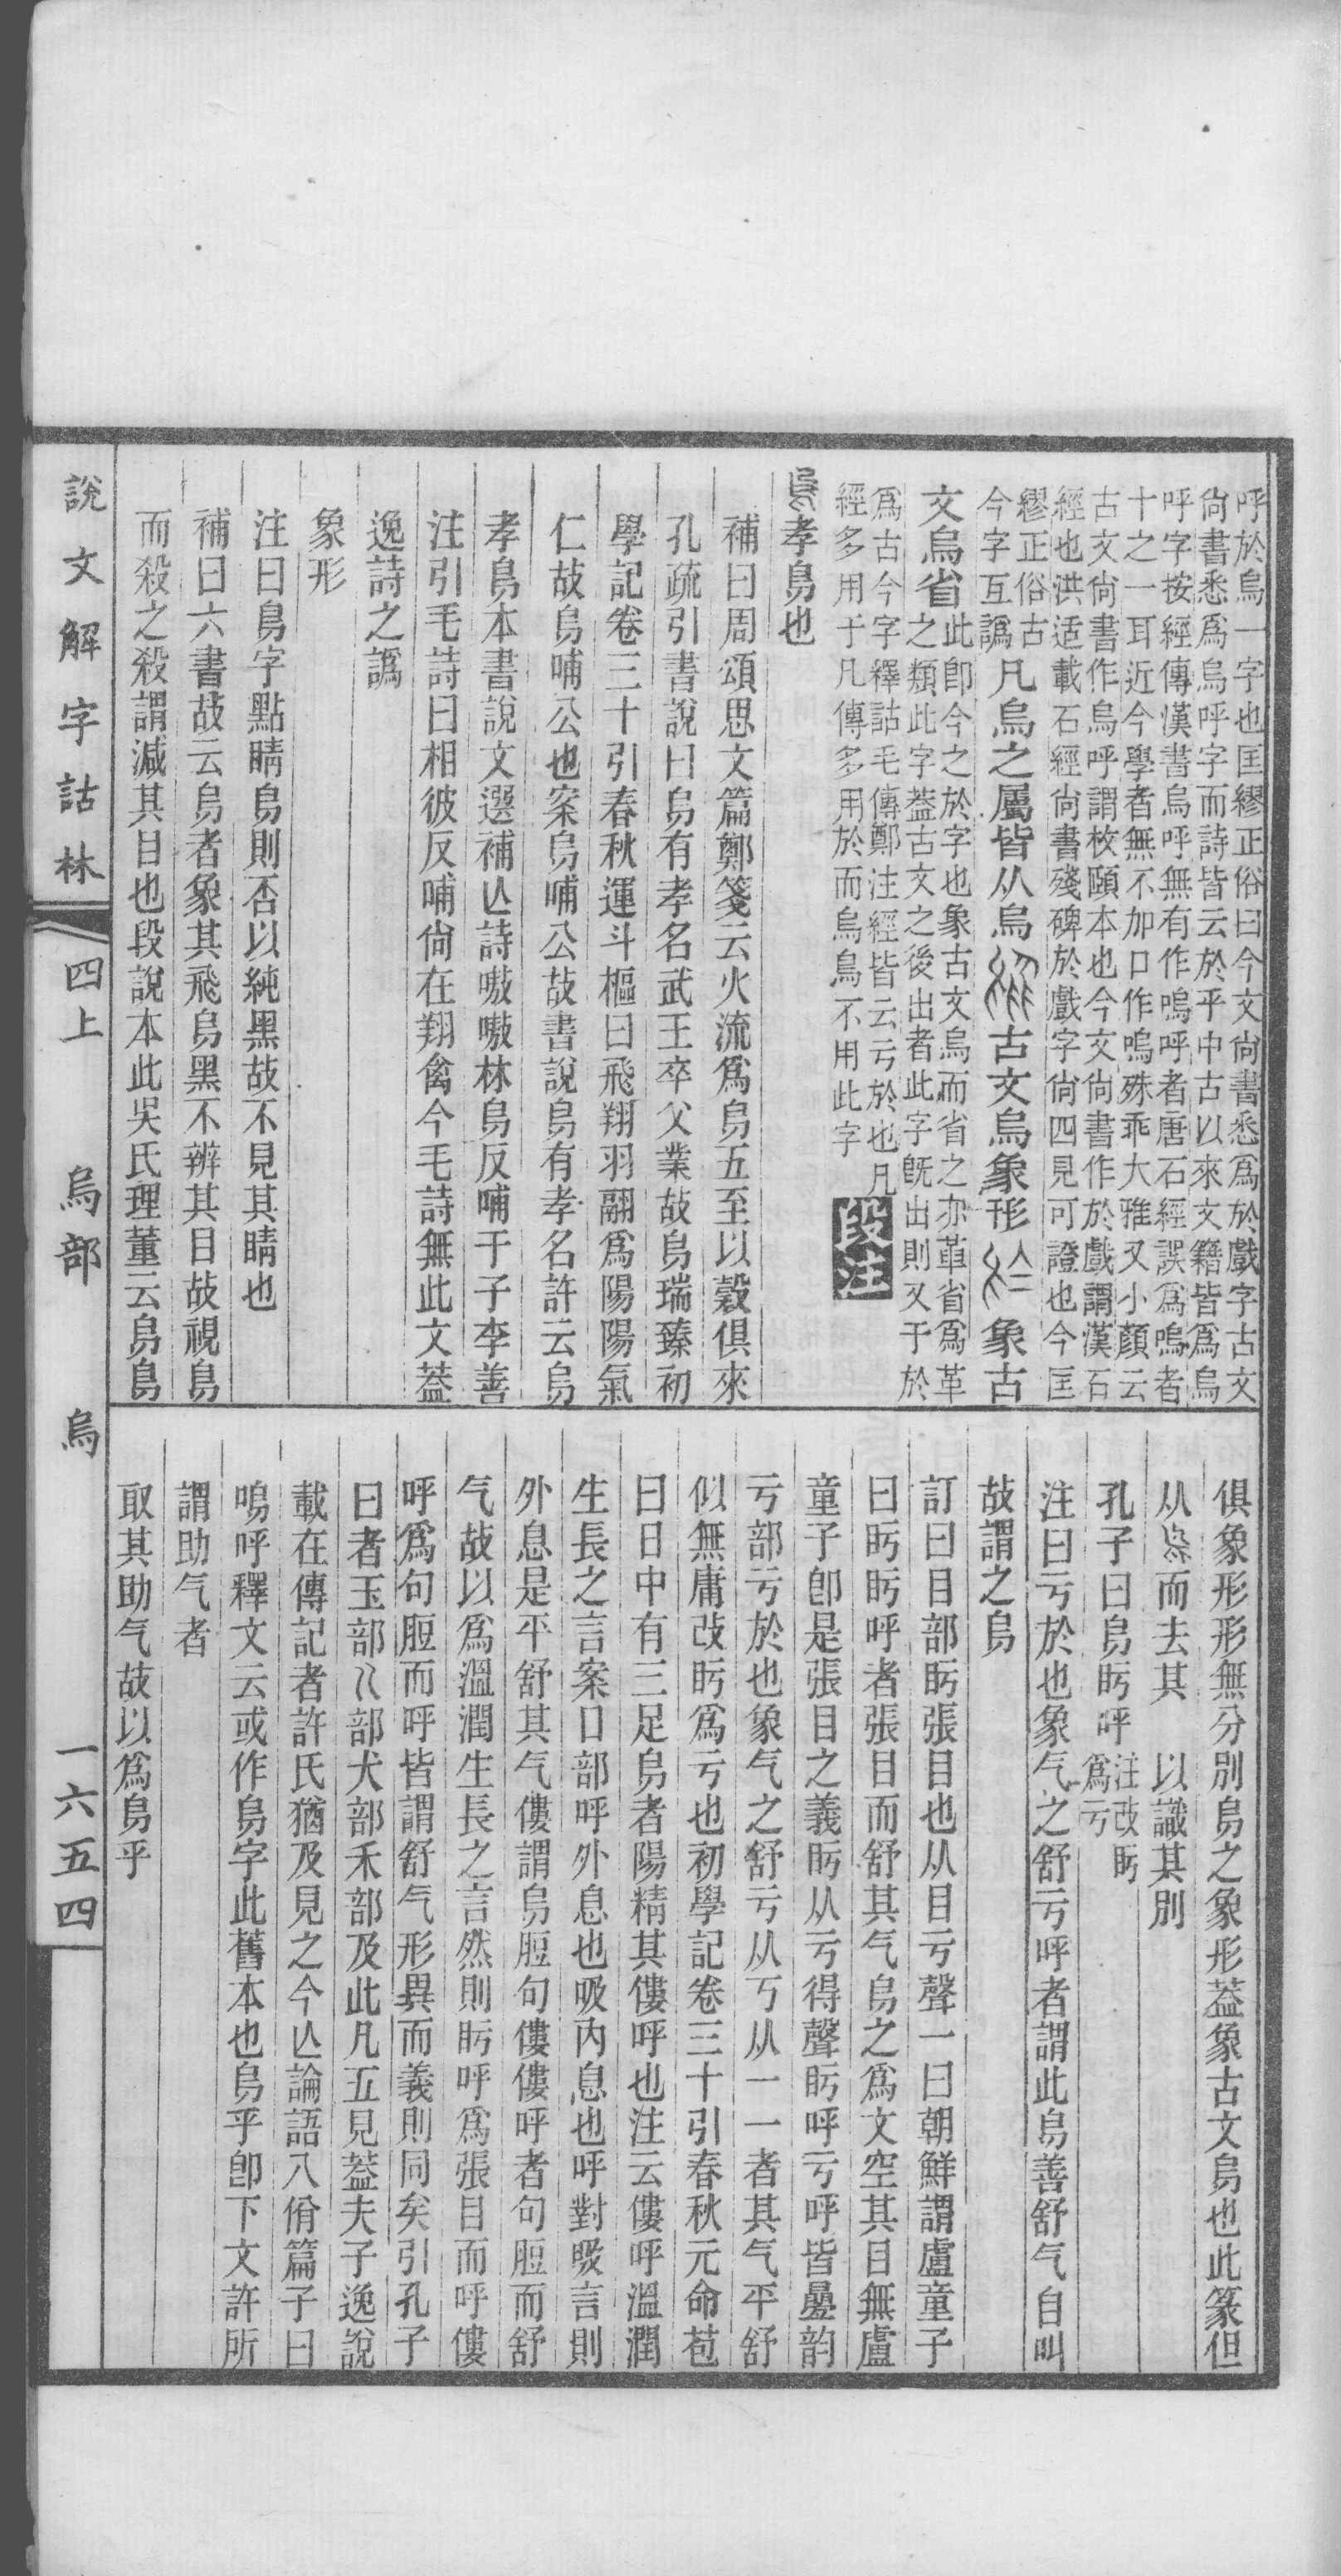 呼於烏一字也匡繆正俗曰今文尙書悉爲於戲字古文
尙書悉爲烏呼字而詩皆云於乎中古以來文籍皆爲烏
呼字按經傳漢書烏呼無有作嗚呼者唐石經誤爲嗚者
十之一耳近今學者無不加口作嗚殊乖大雅又小顏云
古文尙書作烏呼謂枚頤本也今文尙書作於戲謂漢石
經也洪适載石經尙書殘碑於戲字尙四見可證也今匡
繆正俗古
今字互譌
凡烏之屬皆从烏 古文烏象形 象古
文烏省
此卽今之於字也象古文烏而省之亦革省爲革
之類此字葢古文之後出者此字旣出則又于於
爲古今字釋詁毛傳鄭注經皆云亏於也凡
經多用于凡傳多用於而烏鳥不用此字
段注
孝烏也
補曰周頌思文篇鄭箋云火流爲烏五至以穀俱來
孔疏引書說曰烏有孝名武王卒父業故烏瑞臻初
學記卷三十引春秋運斗樞曰飛翔羽翮爲陽陽氣
仁故烏哺公也案烏哺公故書說烏有孝名許云烏
孝鳥本書說文選補亾詩嗷嗷林烏反哺于子李善
注引毛詩曰相彼反哺尙在翔禽今毛詩無此文葢
逸詩之譌
象形
注曰鳥字點睛烏則否以純黑故不見其睛也
補曰六書故云烏者象其飛烏黑不辨其目故視鳥
而殺之殺謂減其目也段說本此吳氏理董云烏鳥
俱象形形無分別烏之象形葢象古文烏也此篆但
从 而去其 以識其別
孔子曰烏盱呼 注改盱
爲亏
注曰亏於也象气之舒亏呼者謂此烏善舒气自叫
故謂之烏
訂曰目部盱張目也从目亏聲一曰朝鮮謂盧童子
曰盱盱呼者張目而舒其气烏之爲文空其目無盧
童子卽是張目之義盱从亏得聲盱呼亏呼皆曡韵
亏部亏於也象气之舒亏从丂从一一者其气平舒
似無庸改盱爲亏也初學記卷三十引春秋元命苞
曰日中有三足烏者陽精其僂呼也注云僂呼溫潤
生長之言案口部呼外息也吸內息也呼對吸言則
外息是平舒其气僂謂烏脰句僂僂呼者句脰而舒
气故以爲溫潤生長之言然則盱呼爲張目而呼僂
呼爲句脰而呼皆謂舒气形異而義則同矣引孔子
曰者玉部儿部犬部禾部及此凡五見葢夫子逸說
載在傳記者許氏猶及見之今亾論語八佾篇子曰
嗚呼釋文云或作烏字此舊本也烏乎卽下文許所
謂助气者
取其助气故以爲烏乎
說文解字詁林 四上 烏部 烏 一六五四